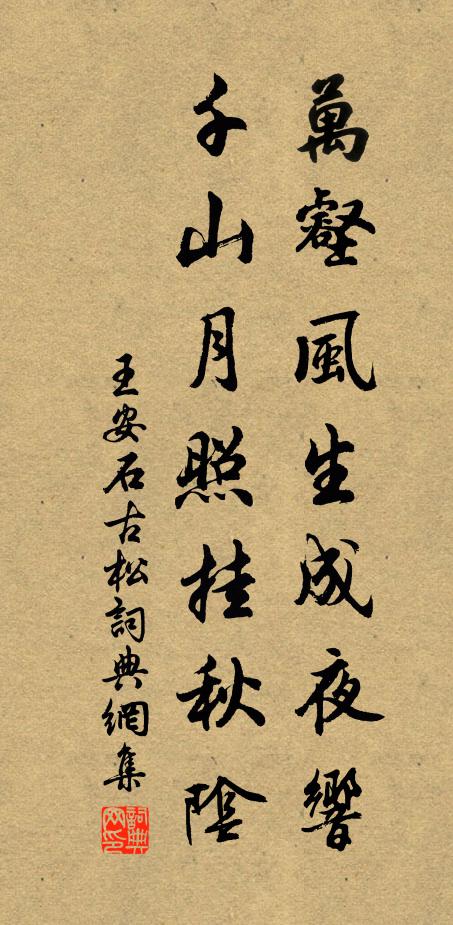 萬壑風生成夜響
千山月照挂秋陰
王安石古松詞典網集
詞典网印